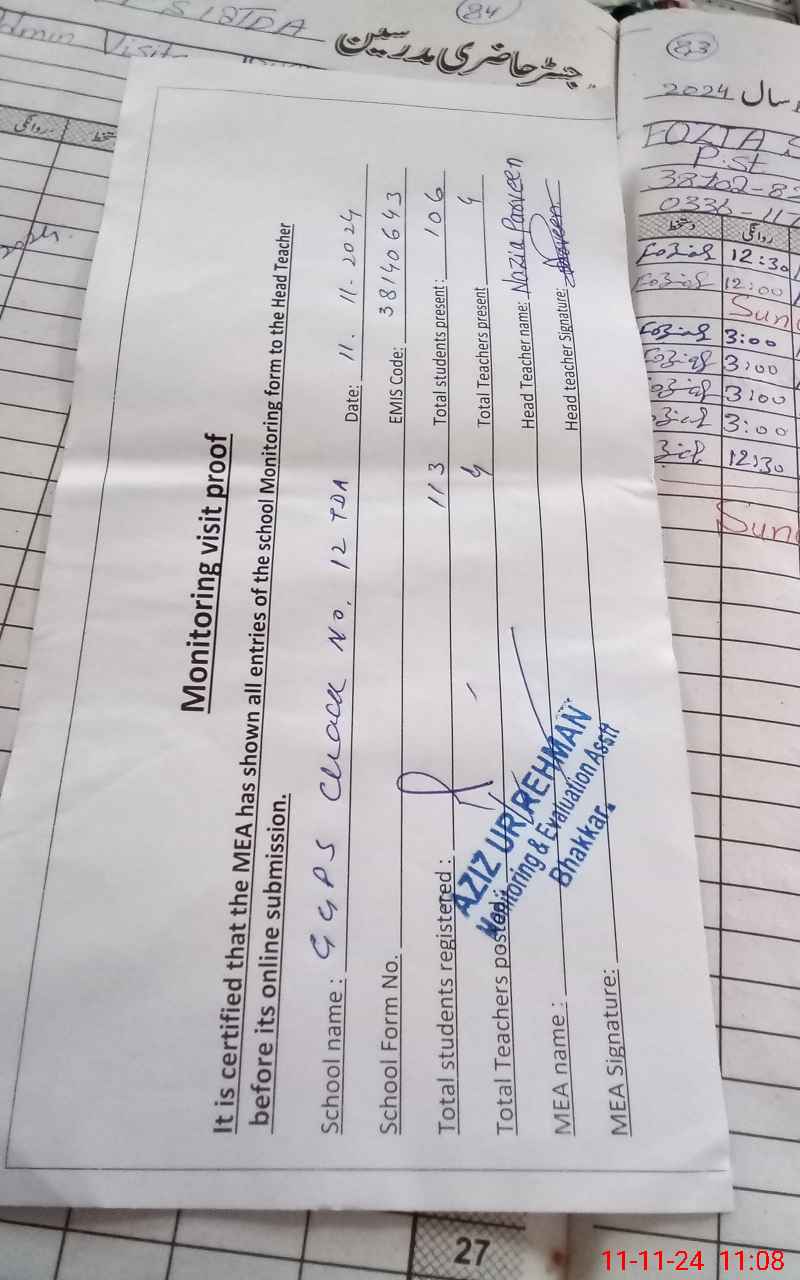 84
رجسٹر حاضری مدرسین
Monitoring visit proof
It is certified that the MEA has shown all entries of the school Monitoring form to the Head Teacher
before its online submission.
School name : GGPS Chack No. 12 TDA Date: 11. 11. 2024
School Form No. EMIS Code: 38140643
Total students registered : 113 Total students present : 106
Total Teachers posted : 4 Total Teachers present 4
MEA name : Head Teacher name: Nazia Parveen
MEA Signature: Head teacher Signature:
AZIZ UR REHMAN
Monitoring & Evaluation Asstt
Bhakkar.
83
سال 2024
FOZIA
P.St
38102-8
0336-11
دستخط روانگی
12:30
12:00
Sun
3:00
3:00
3:00
3:00
12:30
Sun
27
11-11-24 11:08